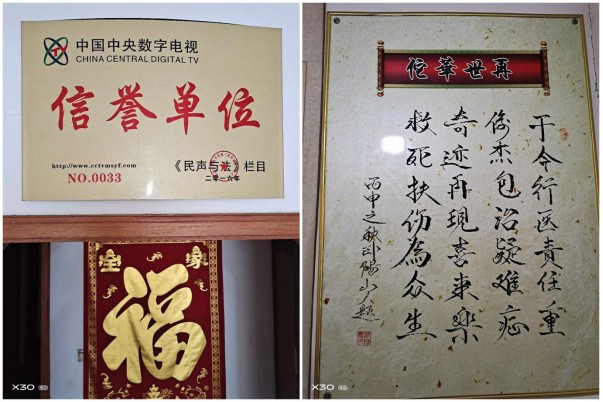 中国中央数字电视
CHINA CENTRAL DIGITAL TV
信誉单位
http://www.cctvmsyf.com
《民声与法》栏目
NO.0033
二零一六年
福
X30
再世華佗
于令行医责任重
俊杰包治疑难症
奇迹再現喜来樂
救死扶伤為众生
丙申之秋
山人题
X30